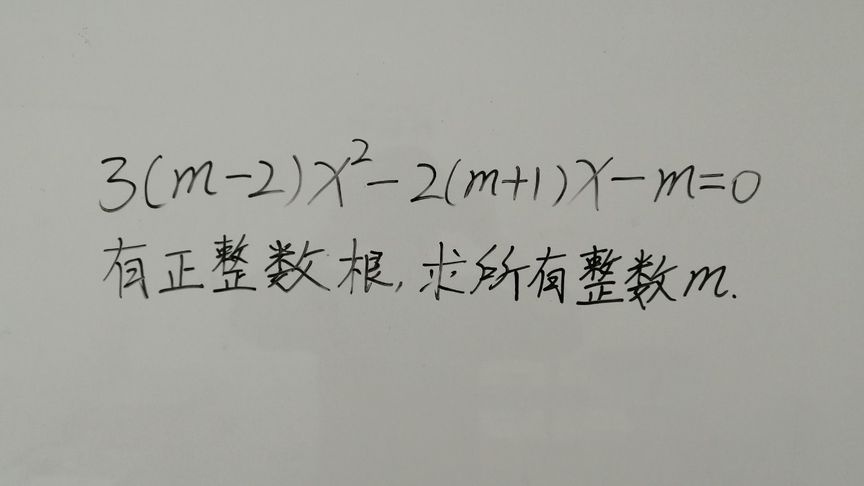 3(m-2)x²-2(m+1)x-m=0
有正整数根,求所有整数m.